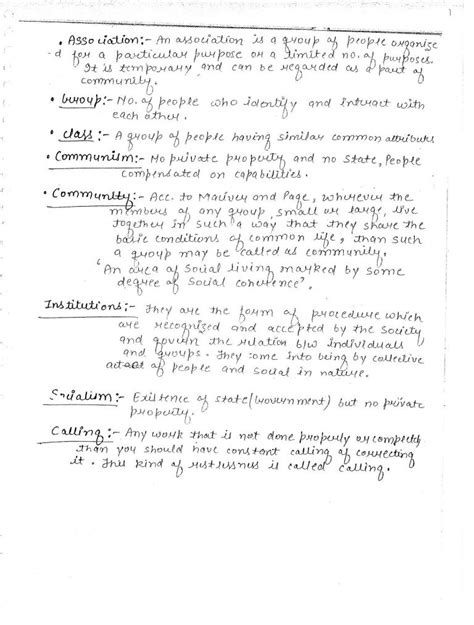 • Association:- An association is a group of people organize
-d for a particular purpose or a limited no. of purposes.
It is temporary and can be regarded as a part of
community.
• Group:- No. of people who identify and interact with
each other.
• Class:- A group of people having similar common attributes
• Communism:- No private property and no State, People
compensated on capabilities.
• Community:- Acc. to Maciver and Page, wherever the
members of any group, small or large, live
together in such a way that they share the
basic conditions of common life, than such
a group may be called as community.
'An area of social living marked by some
degree of social coherence'.
Institutions:- They are the form of procedure which
are recognized and accepted by the Society
and govern the relation b/w individuals
and groups. They come into being by collective
act of people and social in nature.
Socialism:- Existence of state (Government) but no private
property.
Calling:- Any work that is not done properly or completely
than you should have constant calling of correcting
it. This kind of restlessness is called calling.